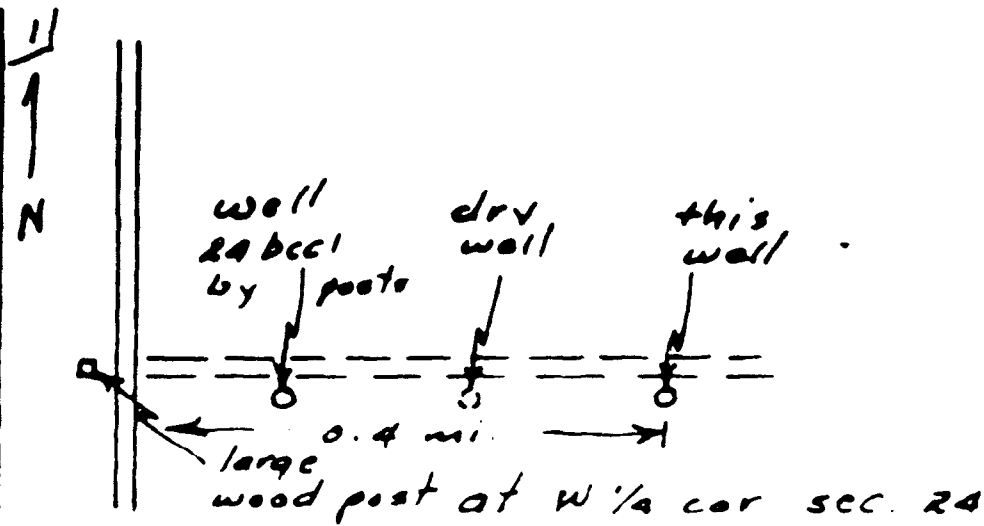 N
well
24bcc1
by posts
dry
well
this
well
0.4 mi.
large
wood post at W 1/4 cor sec. 24